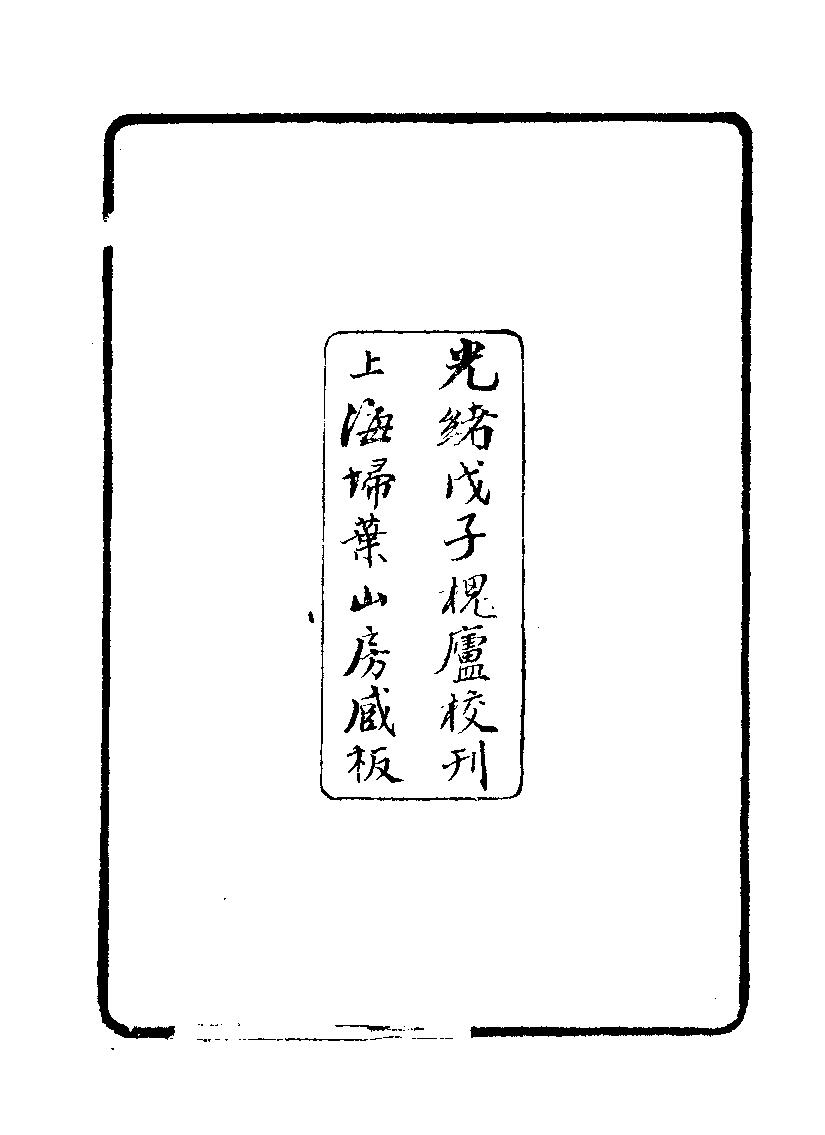 光緒戊子槐廬校刊
上海埽葉山房臧板